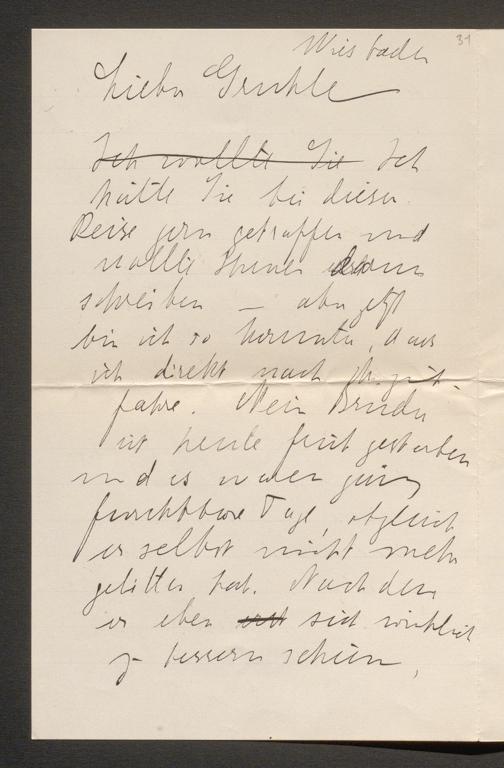 31
Wiesbaden
Lieber Gruhle
Ich wollte Sie Ich
hätte Sie bei dieser
Reise gern getroffen und
wollte Ihnen darum
schreiben — aber jetzt
bin ich so herunter, dass
ich direkt nach
fahre. Mein Bruder
ist heute früh gestorben
und es waren ganz
furchtbare Tage, obgleich
er selbst nicht mehr
gelitten hat. Nachdem
er eben sich wirklich
zu bessern schien,